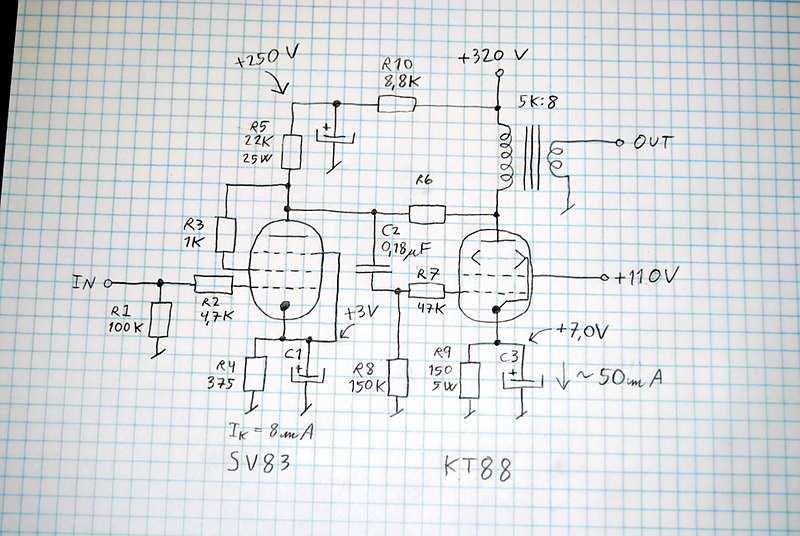 +250 V
R10
8,8K
+320 V
5K:8
R5
22K
25W
+
OUT
R6
R3
1K
C2
0,18µF
IN
R7
47K
+110V
R2
4,7K
R1
100K
+3V
+7,0V
R4
375
C1
+
R8
150K
R9
150
5W
C3
+
~50mA
IK = 8mA
SV83
KT88